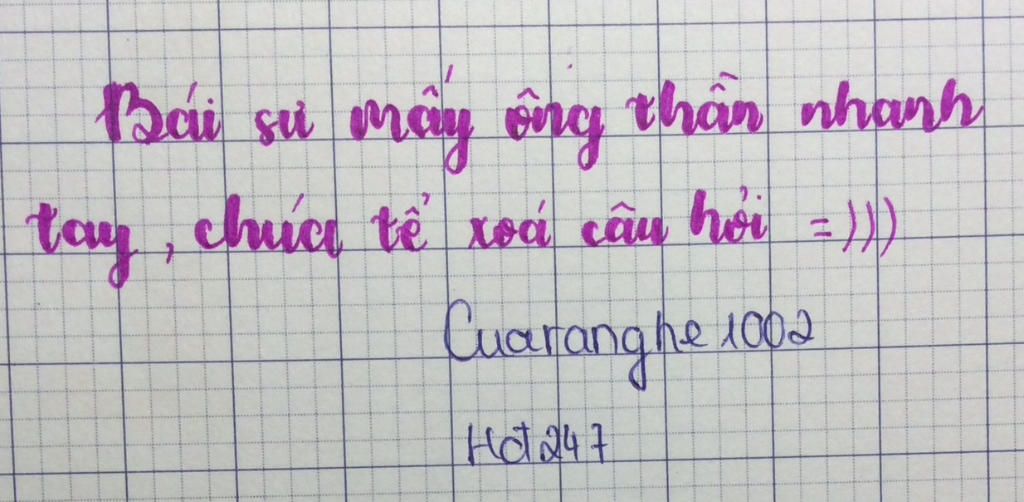 Bái sư mấy ông thần nhanh
tay, chúa tể xoá câu hỏi =)))
Cuaranghe1002
Hđ247